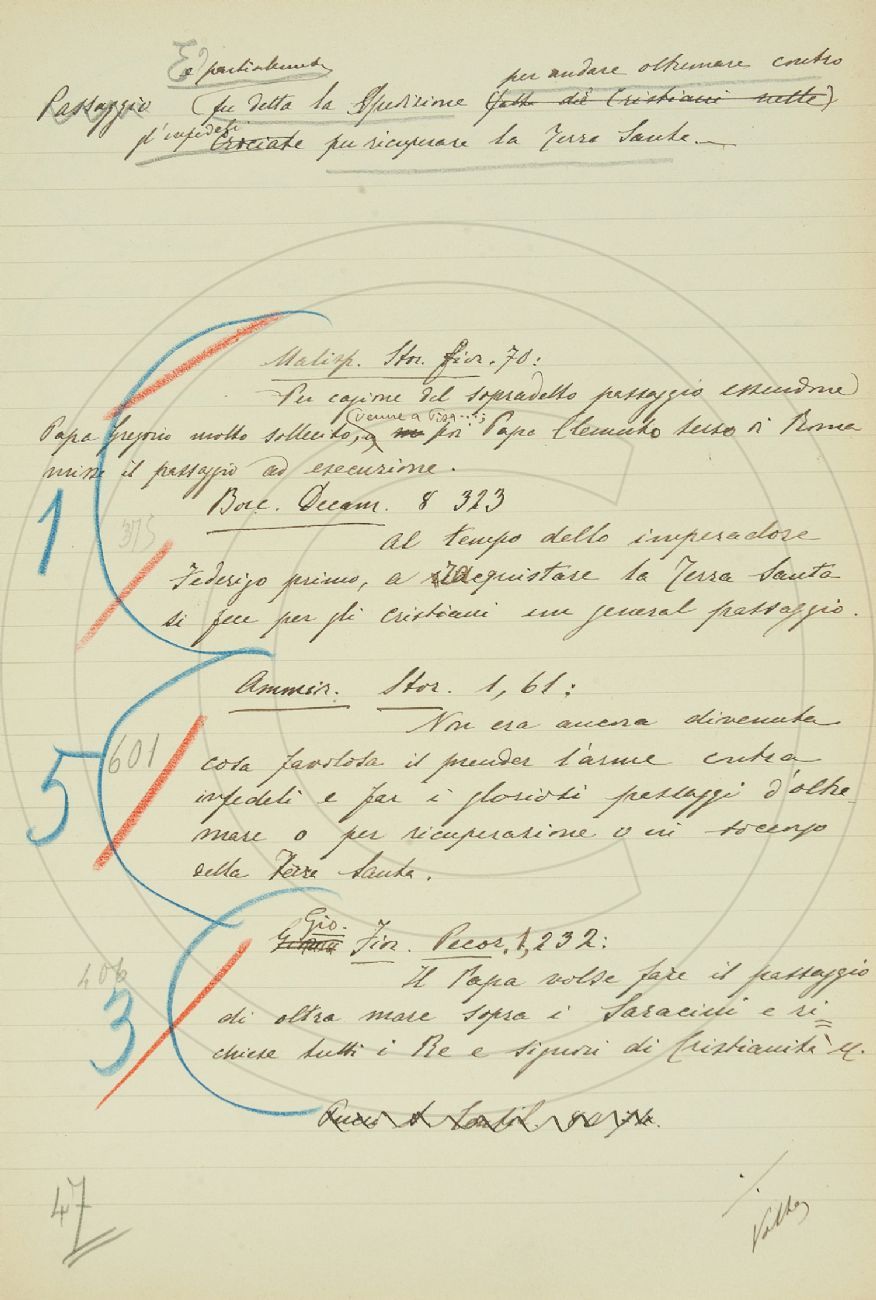 E particolarmente
per andare oltremare contro
Passaggio (fu detta la Spedizione (fatta dai Cristiani nelle)
gl'infedeli
Crociate per ricuperare la Terra Santa.
Malisp. Stor. fior. 70:
Per cagione del sopradetto passaggio essendone
(venne a Pisa...;
Papa Gregorio molto sollecito, e poi Papa Clemento terso di Roma
misse il passaggio ad esecuzione.
1
Bocc. Decam. 8 323
375
Al tempo dello imperadore
Federigo primo, a racquistare la Terra Santa
si fece per gli cristiani un general passaggio.
Ammir. Stor. 1, 61:
Non era ancora divenuta
5
601
cosa favolosa il prender l'arme contra
infedeli e far i gloriosi passaggi d'oltre-
mare o per ricuperazione o in soccorso
della Terra Santa.
Gio.
Fior. Pecor. 1, 232:
406
3
Il Papa volse fare il passaggio
di oltra mare sopra i Saracini e ri-
chiese tutti i Re e signori di Cristianità
47